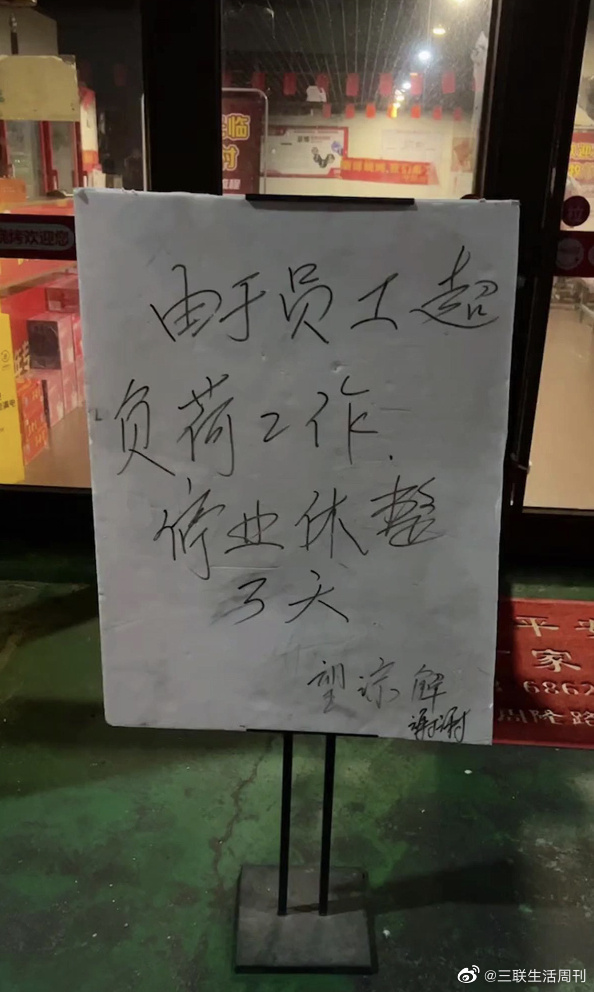 烤欢迎您
由于员工超
负荷工作.
停业休整
3天
望谅解
谢谢
平安
家
6862
隆路
@三联生活周刊